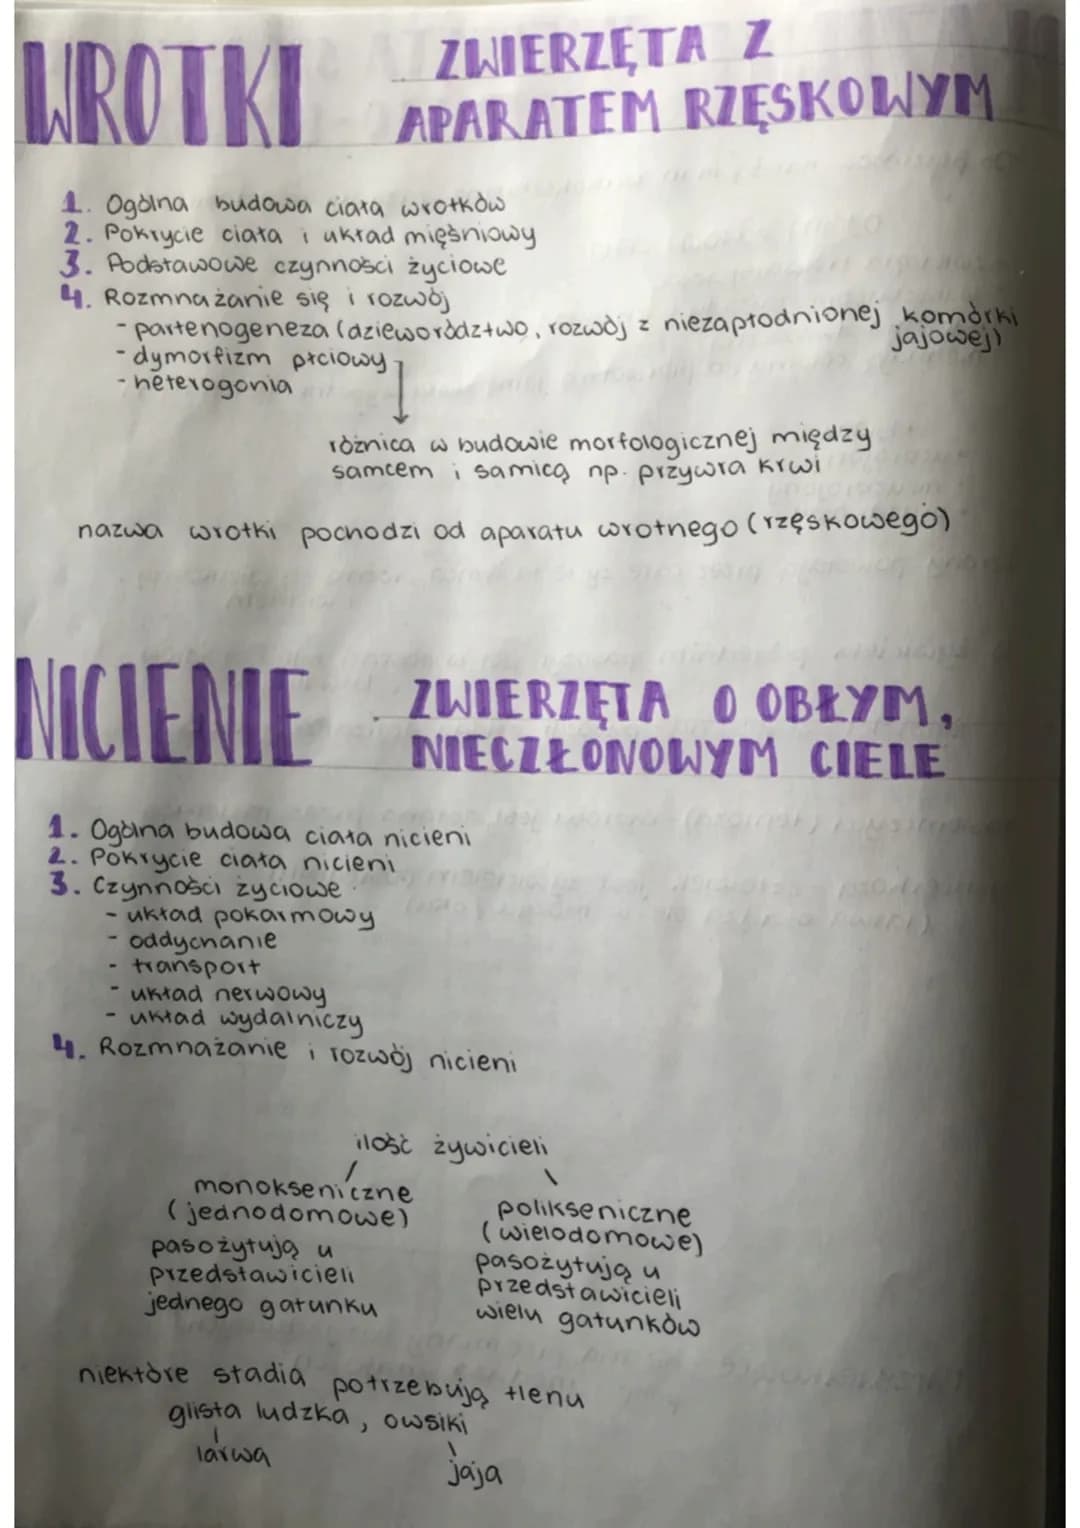 WROTKI
ZWIERZĘTA Z
APARATEM RZĘSKOWYM
1. Ogólna budowa ciała wrotków
2. Pokrycie ciała i układ mięśniowy
3. Podstawowe czynności życiowe
4. Rozmnażanie się i rozwój
- partenogeneza (dzieworództwo, rozwój z niezapłodnionej komórki
jajowej)
- dymorfizm płciowy
- heterogonia
różnica w budowie morfologicznej między
samcem i samicą np. przywra krwi
nazwa wrotki pochodzi od aparatu wrotnego (rzęskowego)
NICIENIE
ZWIERZĘTA O OBŁYM,
NIECZŁONOWYM CIELE
1. Ogólna budowa ciała nicieni
2. Pokrycie ciała nicieni
3. Czynności życiowe
- układ pokarmowy
- oddychanie
- transport
- układ nerwowy
- układ wydalniczy
4. Rozmnażanie i rozwój nicieni
ilość żywicieli
monokseniczne
(jednodomowe)
pasożytują u
przedstawicieli
jednego gatunku
polikseniczne
(wielodomowe)
pasożytują u
przedstawicieli
wielu gatunków
niektóre stadia potrzebują tlenu
glista ludzka, owsiki
larwa
jaja